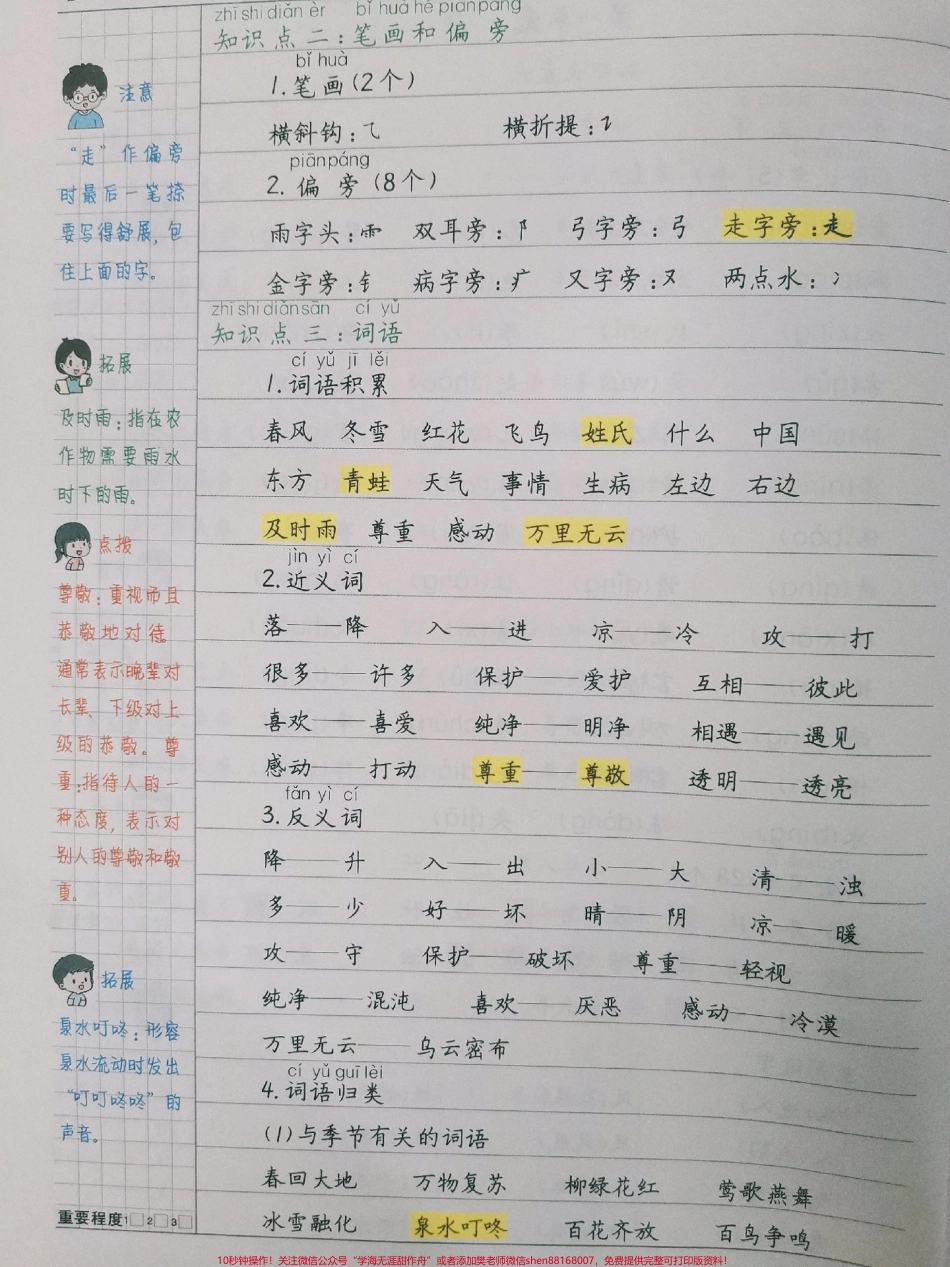 zhī shi diǎn èr bǐ huà hé piān páng
知识点二：笔画和偏旁
bǐ huà
1.笔画（2个）
横斜钩：⺄ 横折提：㇊
piān páng
2.偏旁（8个）
雨字头：⻗ 双耳旁：阝 弓字旁：弓 走字旁：走
金字旁：钅 病字旁：疒 又字旁：又 两点水：冫
zhī shi diǎn sān cí yǔ
知识点三：词语
cí yǔ jī lěi
1.词语积累
春风 冬雪 红花 飞鸟 姓氏 什么 中国
东方 青蛙 天气 事情 生病 左边 右边
及时雨 尊重 感动 万里无云
jìn yì cí
2.近义词
落——降 入——进 凉——冷 攻——打
很多——许多 保护——爱护 互相——彼此
喜欢——喜爱 纯净——明净 相遇——遇见
感动——打动 尊重——尊敬 透明——透亮
fǎn yì cí
3.反义词
降——升 入——出 小——大 清——浊
多——少 好——坏 晴——阴 凉——暖
攻——守 保护——破坏 尊重——轻视
纯净——混沌 喜欢——厌恶 感动——冷漠
万里无云——乌云密布
cí yǔ guī lèi
4.词语归类
（1）与季节有关的词语
春回大地 万物复苏 柳绿花红 莺歌燕舞
冰雪融化 泉水叮咚 百花齐放 百鸟争鸣
注意
“走”作偏旁
时最后一笔捺
要写得舒展，包
住上面的字。
拓展
及时雨：指在农
作物需要雨水
时下的雨。
点拨
尊敬：重视而且
恭敬地对待。
通常表示晚辈对
长辈、下级对上
级的恭敬。尊
重：指待人的一
种态度，表示对
别人的尊敬和敬
重。
拓展
泉水叮咚：形容
泉水流动时发出
“叮叮咚咚”的
声音。
重要程度1□2□3□
10秒钟操作！关注微信公众号“学海无涯甜作舟”或者添加樊老师微信shen88168007，免费提供完整可打印版资料！